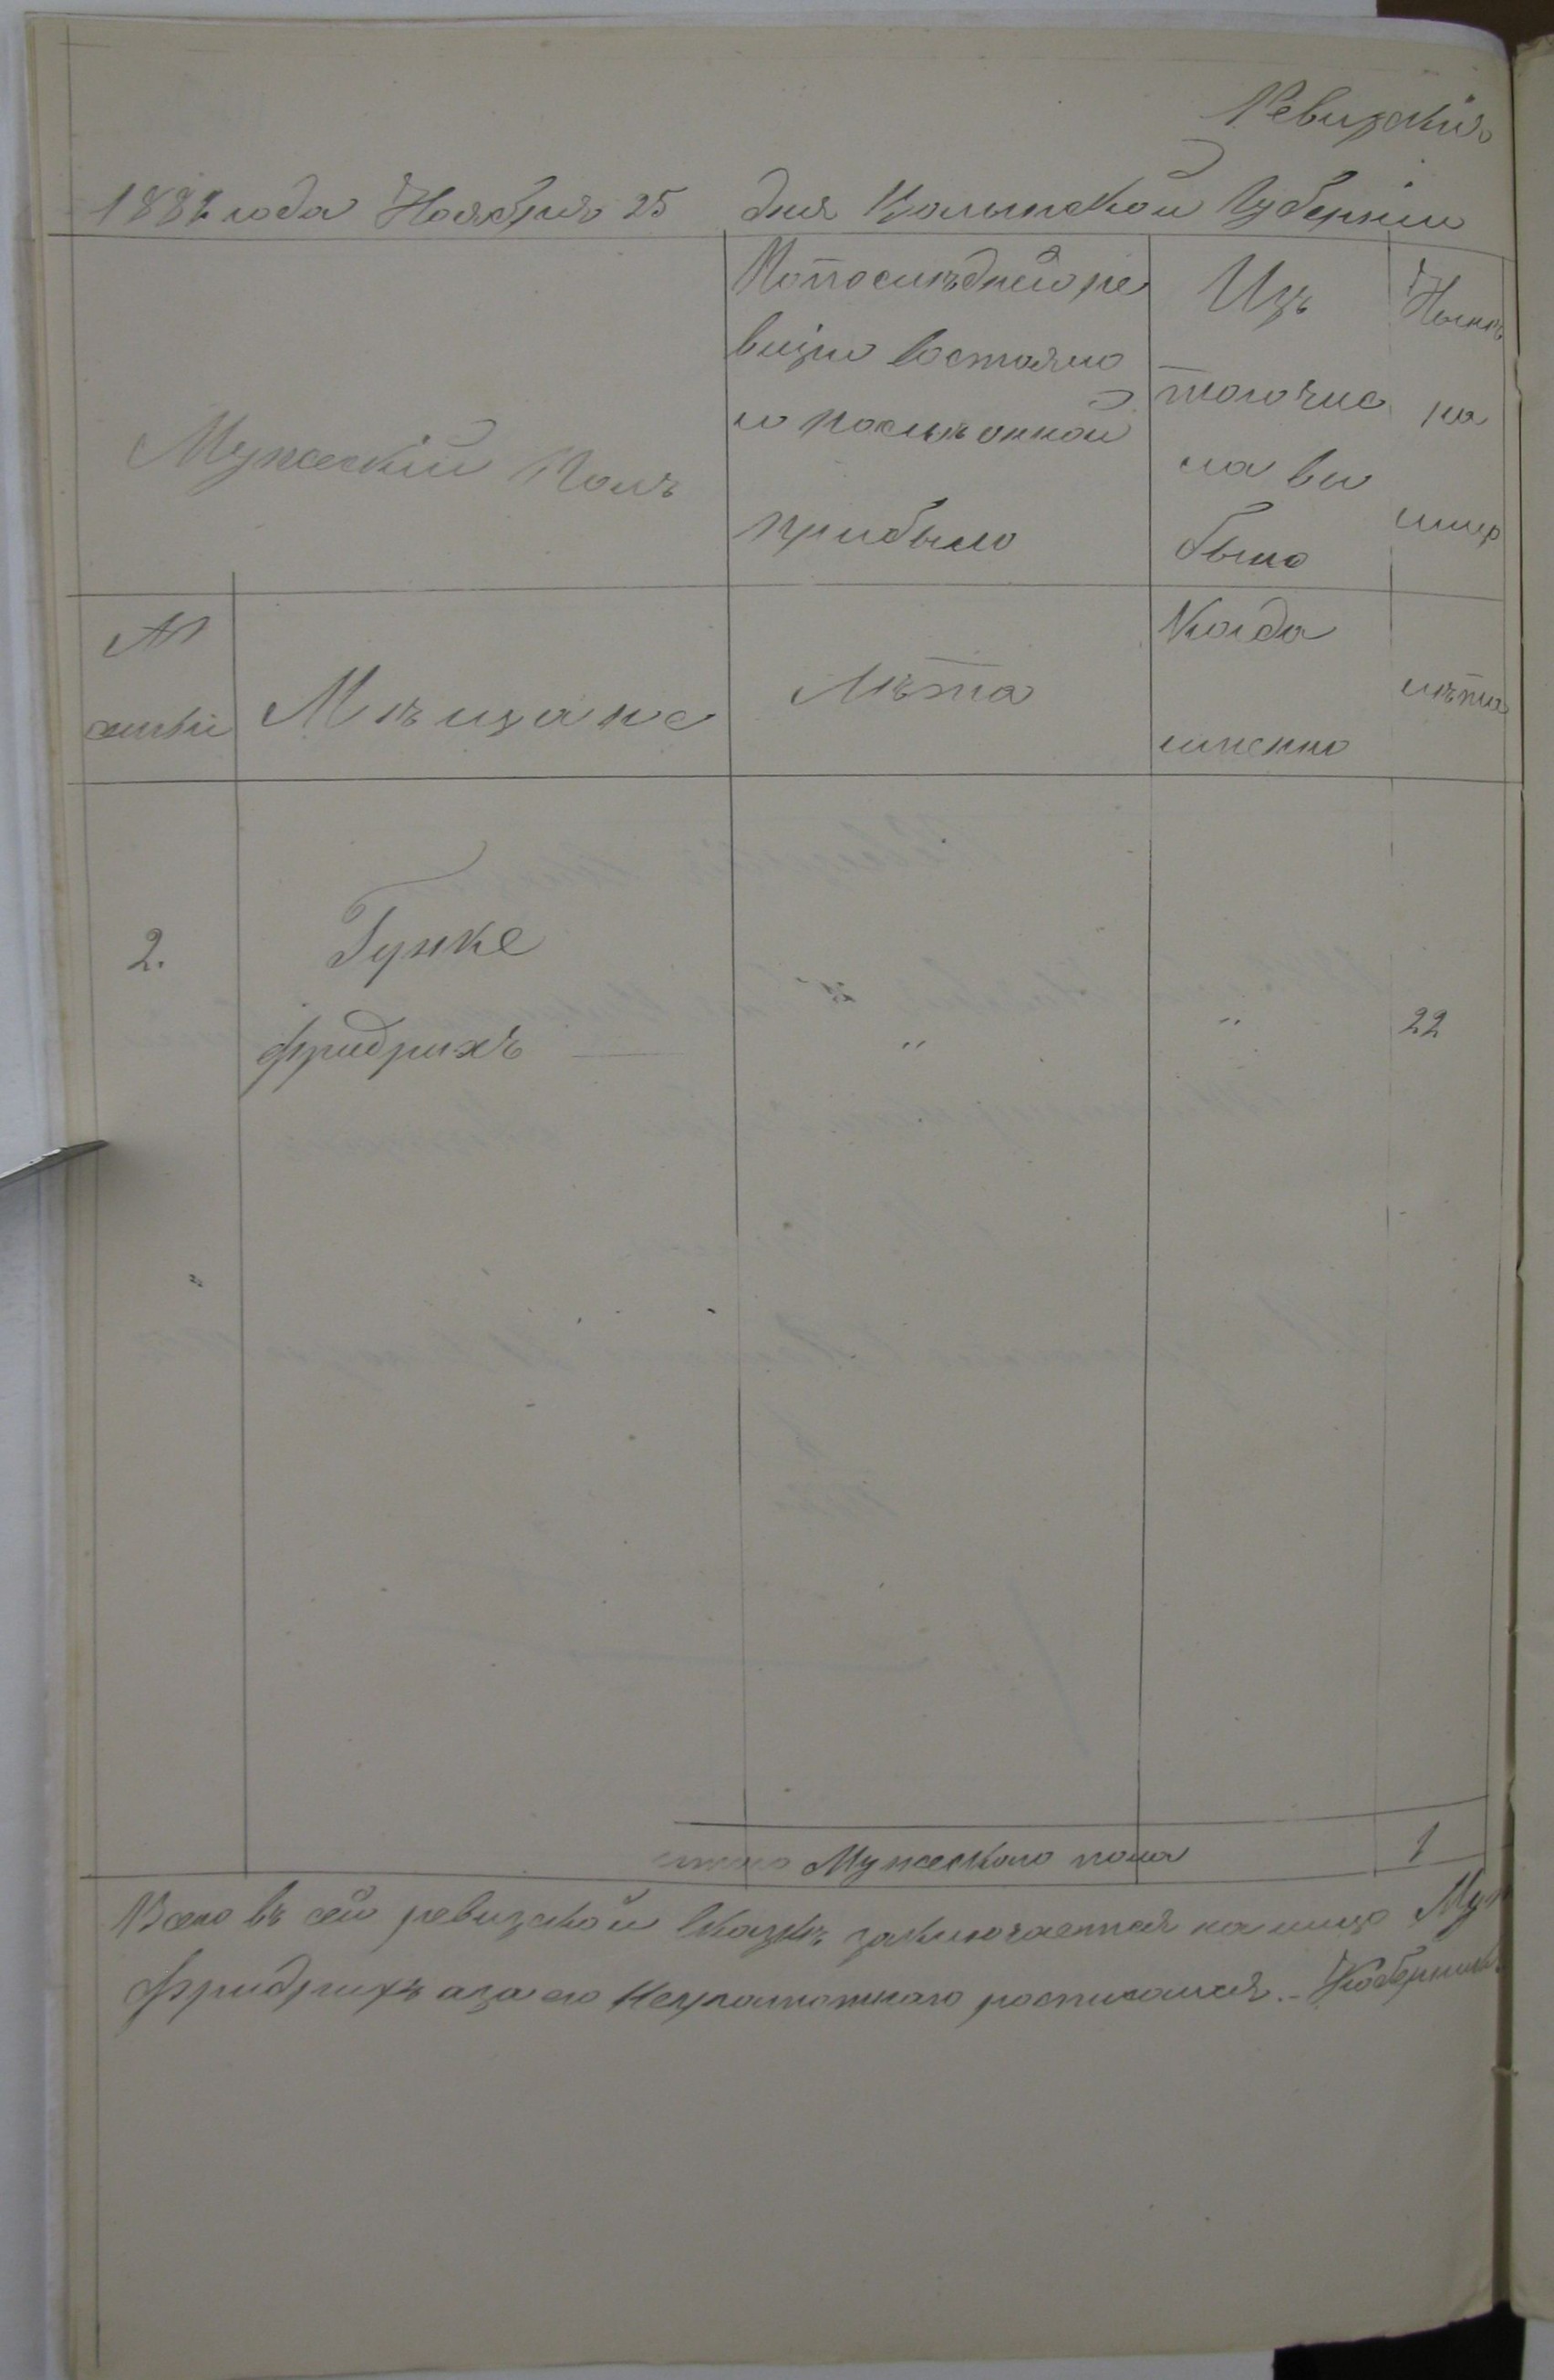 Ревизкия
1882 года Ноября 25 дня Волынской Губернии
Мужескій Полъ
По последней ре
визiи состояло
и после оной
прибыло
Изъ
того чис
ла вы
было
Нынѣ
на
лицо
№
семьи
Мѣщане
Лѣта
Когда
именно
лѣта
2.
Гунке
Фридрихъ — " " 22
"
итого Мужескаго пола 1
Всего въ сей ревизской сказкѣ заключается на лицо Муж
Фридрихъ а за его неграмотнаго росписался.-